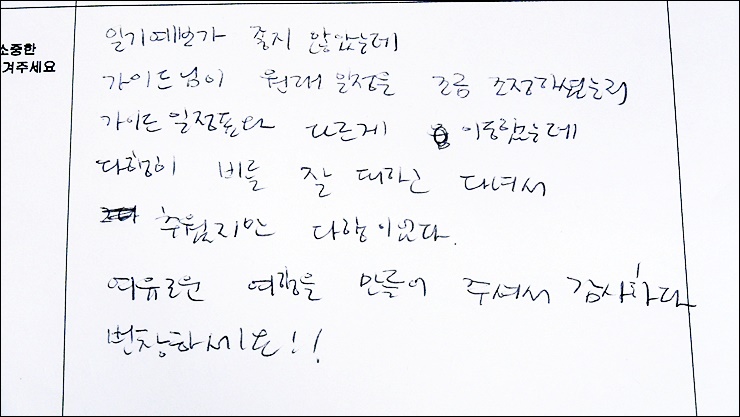 소중한
겨주세요
일기예보가 좋지 않았는데
가이드님이 원래 일정을 조금 조정하셨는지
가이드 일정표와 다르게 이동했는데
다행히 비를 잘 피하고 다녀서
추웠지만 다행이었다.
여유로운 여행을 만들어 주셔서 감사하다
번창하세요!!